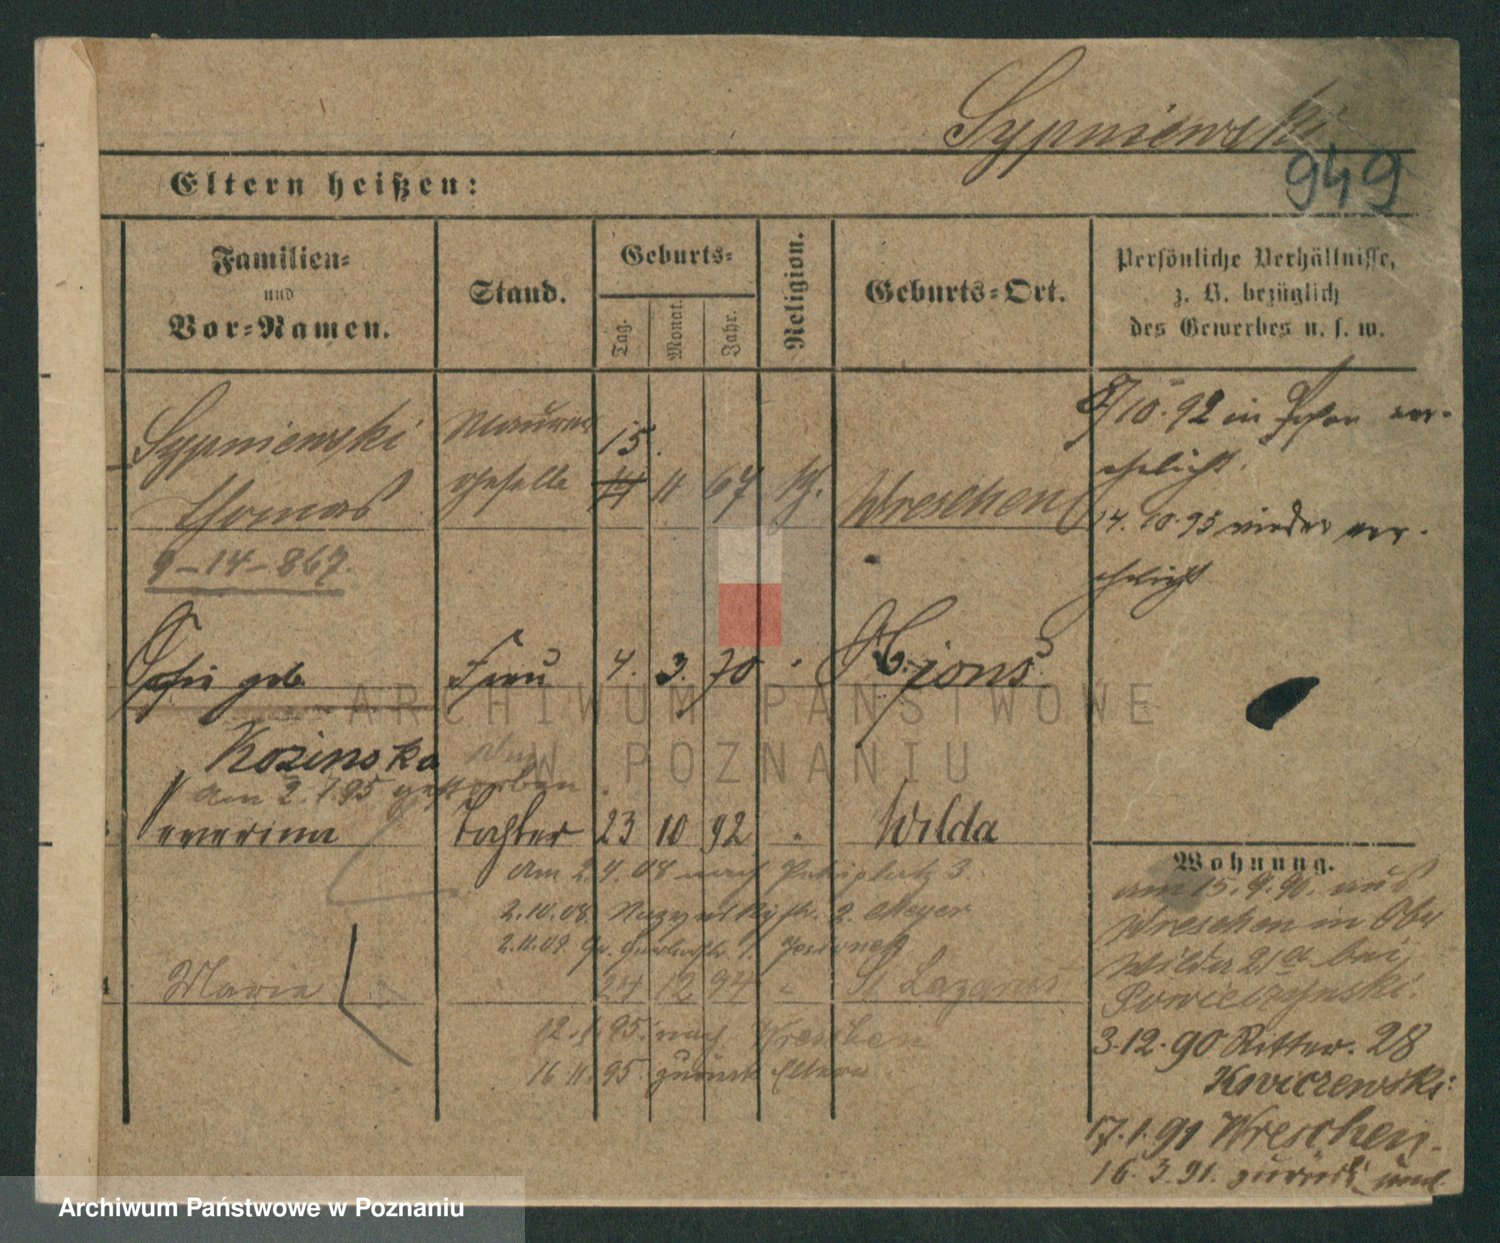 Sypniewski
949
Eltern heißen:
Familien-
und
Vor-Namen.
Stand.
Geburts-
Tag.
Monat.
Jahr.
Religion.
Geburts-Ort.
Persönliche Verhältnisse,
z. B. bezüglich
des Gewerbes u. s. w.
Sypniewski
Thomas
Maurer
geselle
15.
14 11 67 kth. Wreschen
8/10. 92 in Posen ver-
ehelicht.
14. 10. 95 wieder ver-
ehelicht
9-14-867.
geb. Frau 4. 3. 70 " Xions
Kozinska
am 2. 1. 95 gestorben.
Severina Tochter 23 10 92 " Wilda
am 2. 4. 08 nach Petriplatz 3.
2. 10. 08 str. 2. Meyer
2. 11. 09. Gr. str. 1.
4 Maria 24 12 94 " St. Lazarus
12. 1. 95. nach Wreschen
16. 11. 95 zurück Eltern
Wohnung.
am 15. 9. 90. aus
Wreschen in Ober
Wilda 21a bei
3. 12. 90 Ritter. 28
17. 1. 91 Wreschen.
16. 3. 91. zurück und
ARCHIWUM PAŃSTWOWE
W POZNANIU
Archiwum Państwowe w Poznaniu